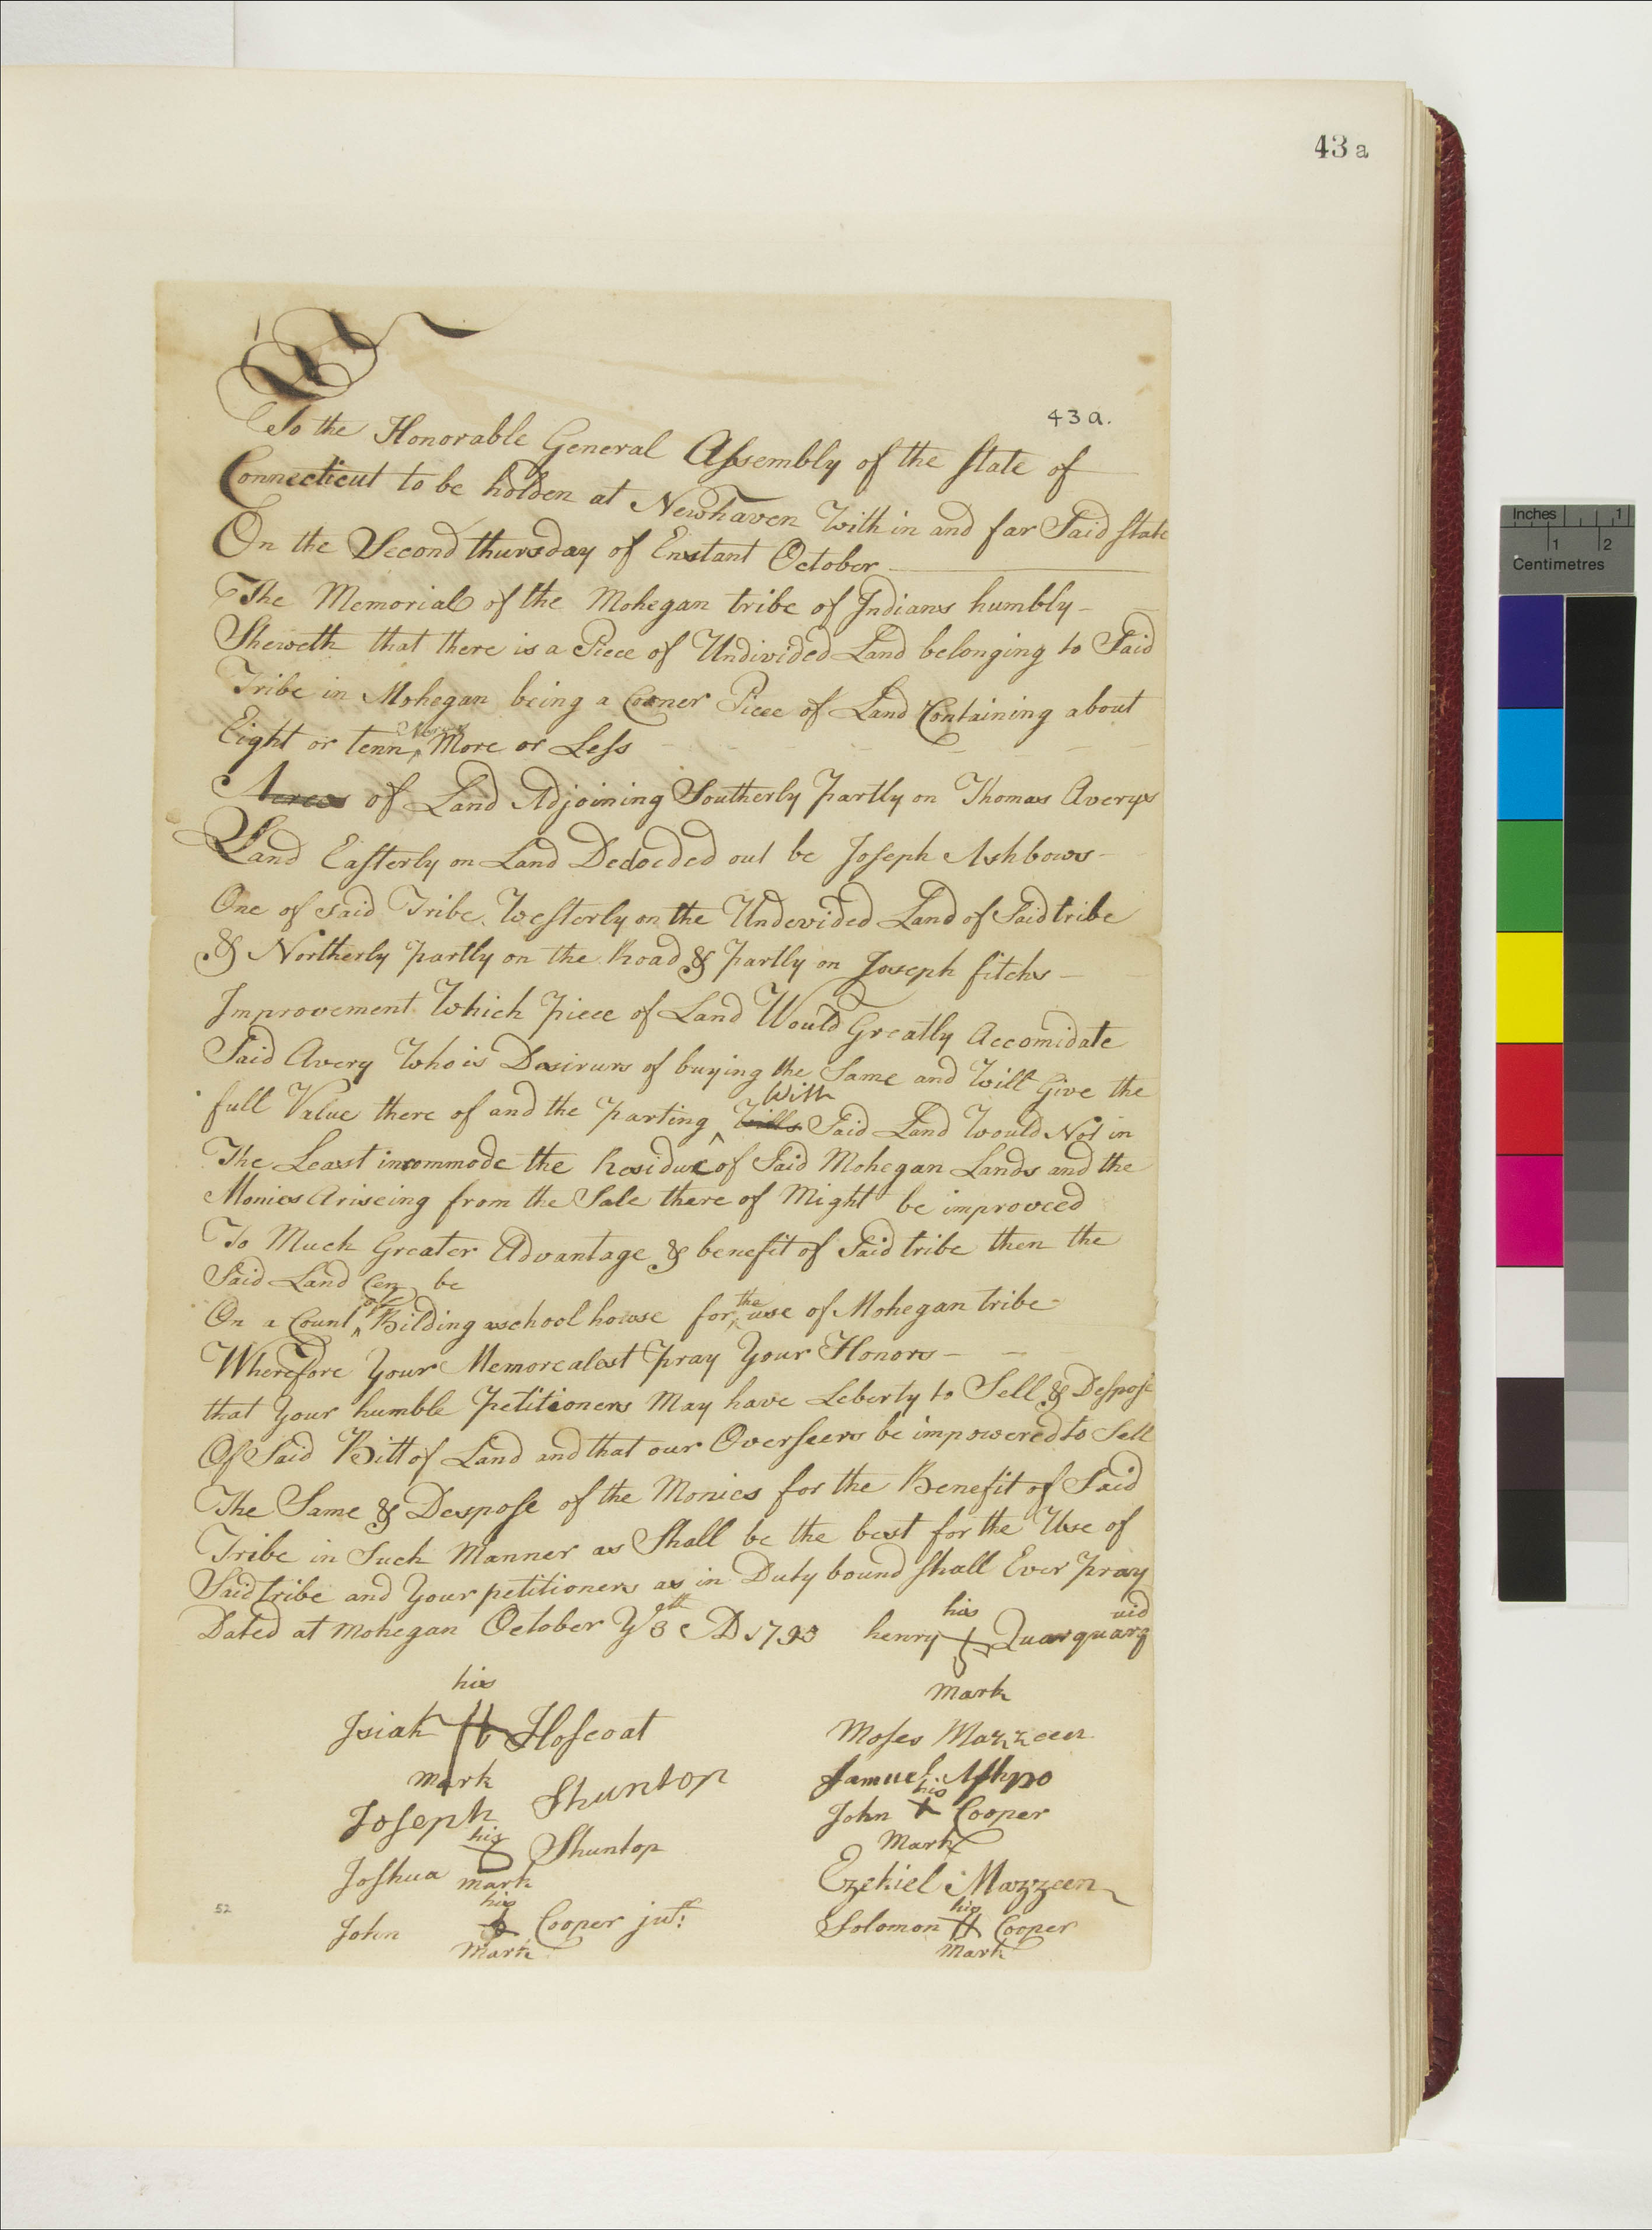 43 a
43 a.
To the Honorable General Assembly of the State of
Connecticut to be holden at Newhaven With in and far Said State
On the Second thursday of Enstant October
The Memorial of the Mohegan tribe of Indians humbly
Sheweth that there is a Piece of Undivided Land belonging to Said
Tribe in Mohegan being a Corner Piece of Land Containing about
Acres
Eight or tenn ^ More or Less
Acrees of Land Adjoining Southerly Partly on Thomas Averys
Land Easterly on Land Dedveded out be Joseph Ashbows
One of said Tribe. Westerly on the Undevided Land of Said tribe
& Northerly Partly on the Road & Partly on Joseph fitchs
Improvement. Which Piece of Land Would Greatly Accomidate
Said Avery Who is Desirurs of buying the Same and Will Give the
With
full Value there of and the Parting ^ Said Land Would Not in
The Least incommode the Residue of Said Mohegan Lands and the
Monies Ariseing from the Sale there of Might be improveed
To Much Greater Advantage & benefit of Said tribe then the
Said Land Can be
of the
On a Count ^ Bilding aschool howse for ^ use of Mohegan tribe
Wherefore Your Memorealest Pray Your Honors
that Your humble Petitioners May have Leberty to Sell & Despose
Of Said Bitt of Land and that our Overseers be impowered to Sell
The Same & Despose of the Monies for the Benefit of Said
Tribe in Such Manner as Shall be the best for the Use of
Said tribe and Your petitioners as in Duty bound Shall Ever Pray
Dated at Mohegan October Y 8th AD 1793 henry his Quarquarq uid
mark
his
Isiah Hoscoat
mark
Moses Mazzeen
Joseph Shuntop
Samuel Ashpo
his
John Cooper
Mark
his
Joshua Shuntop
mark
Ezekiel Mazzeen
his
John Cooper junr.
Mark
his
Solomon Cooper
Mark
52
Inches 1
1 2
Centimetres